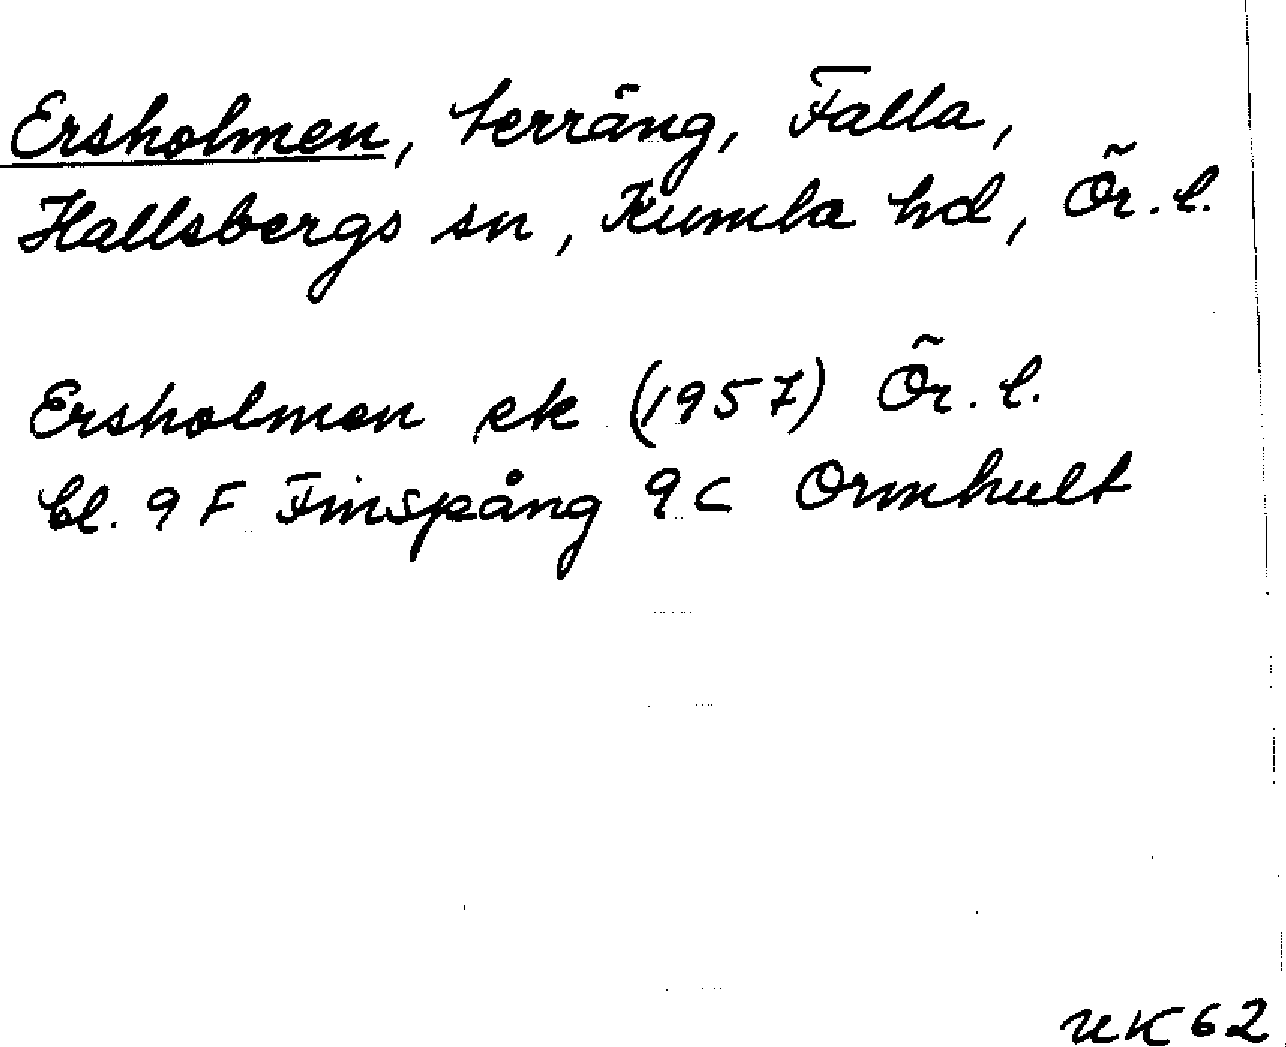 Ersholmen, terräng, Falla,
Hallsbergs sn, Kumla hd, Ör. l.
Ersholmen ek (1957) Ör. l.
bl. 9 F Finspång 9 c Ormhult
UK 62